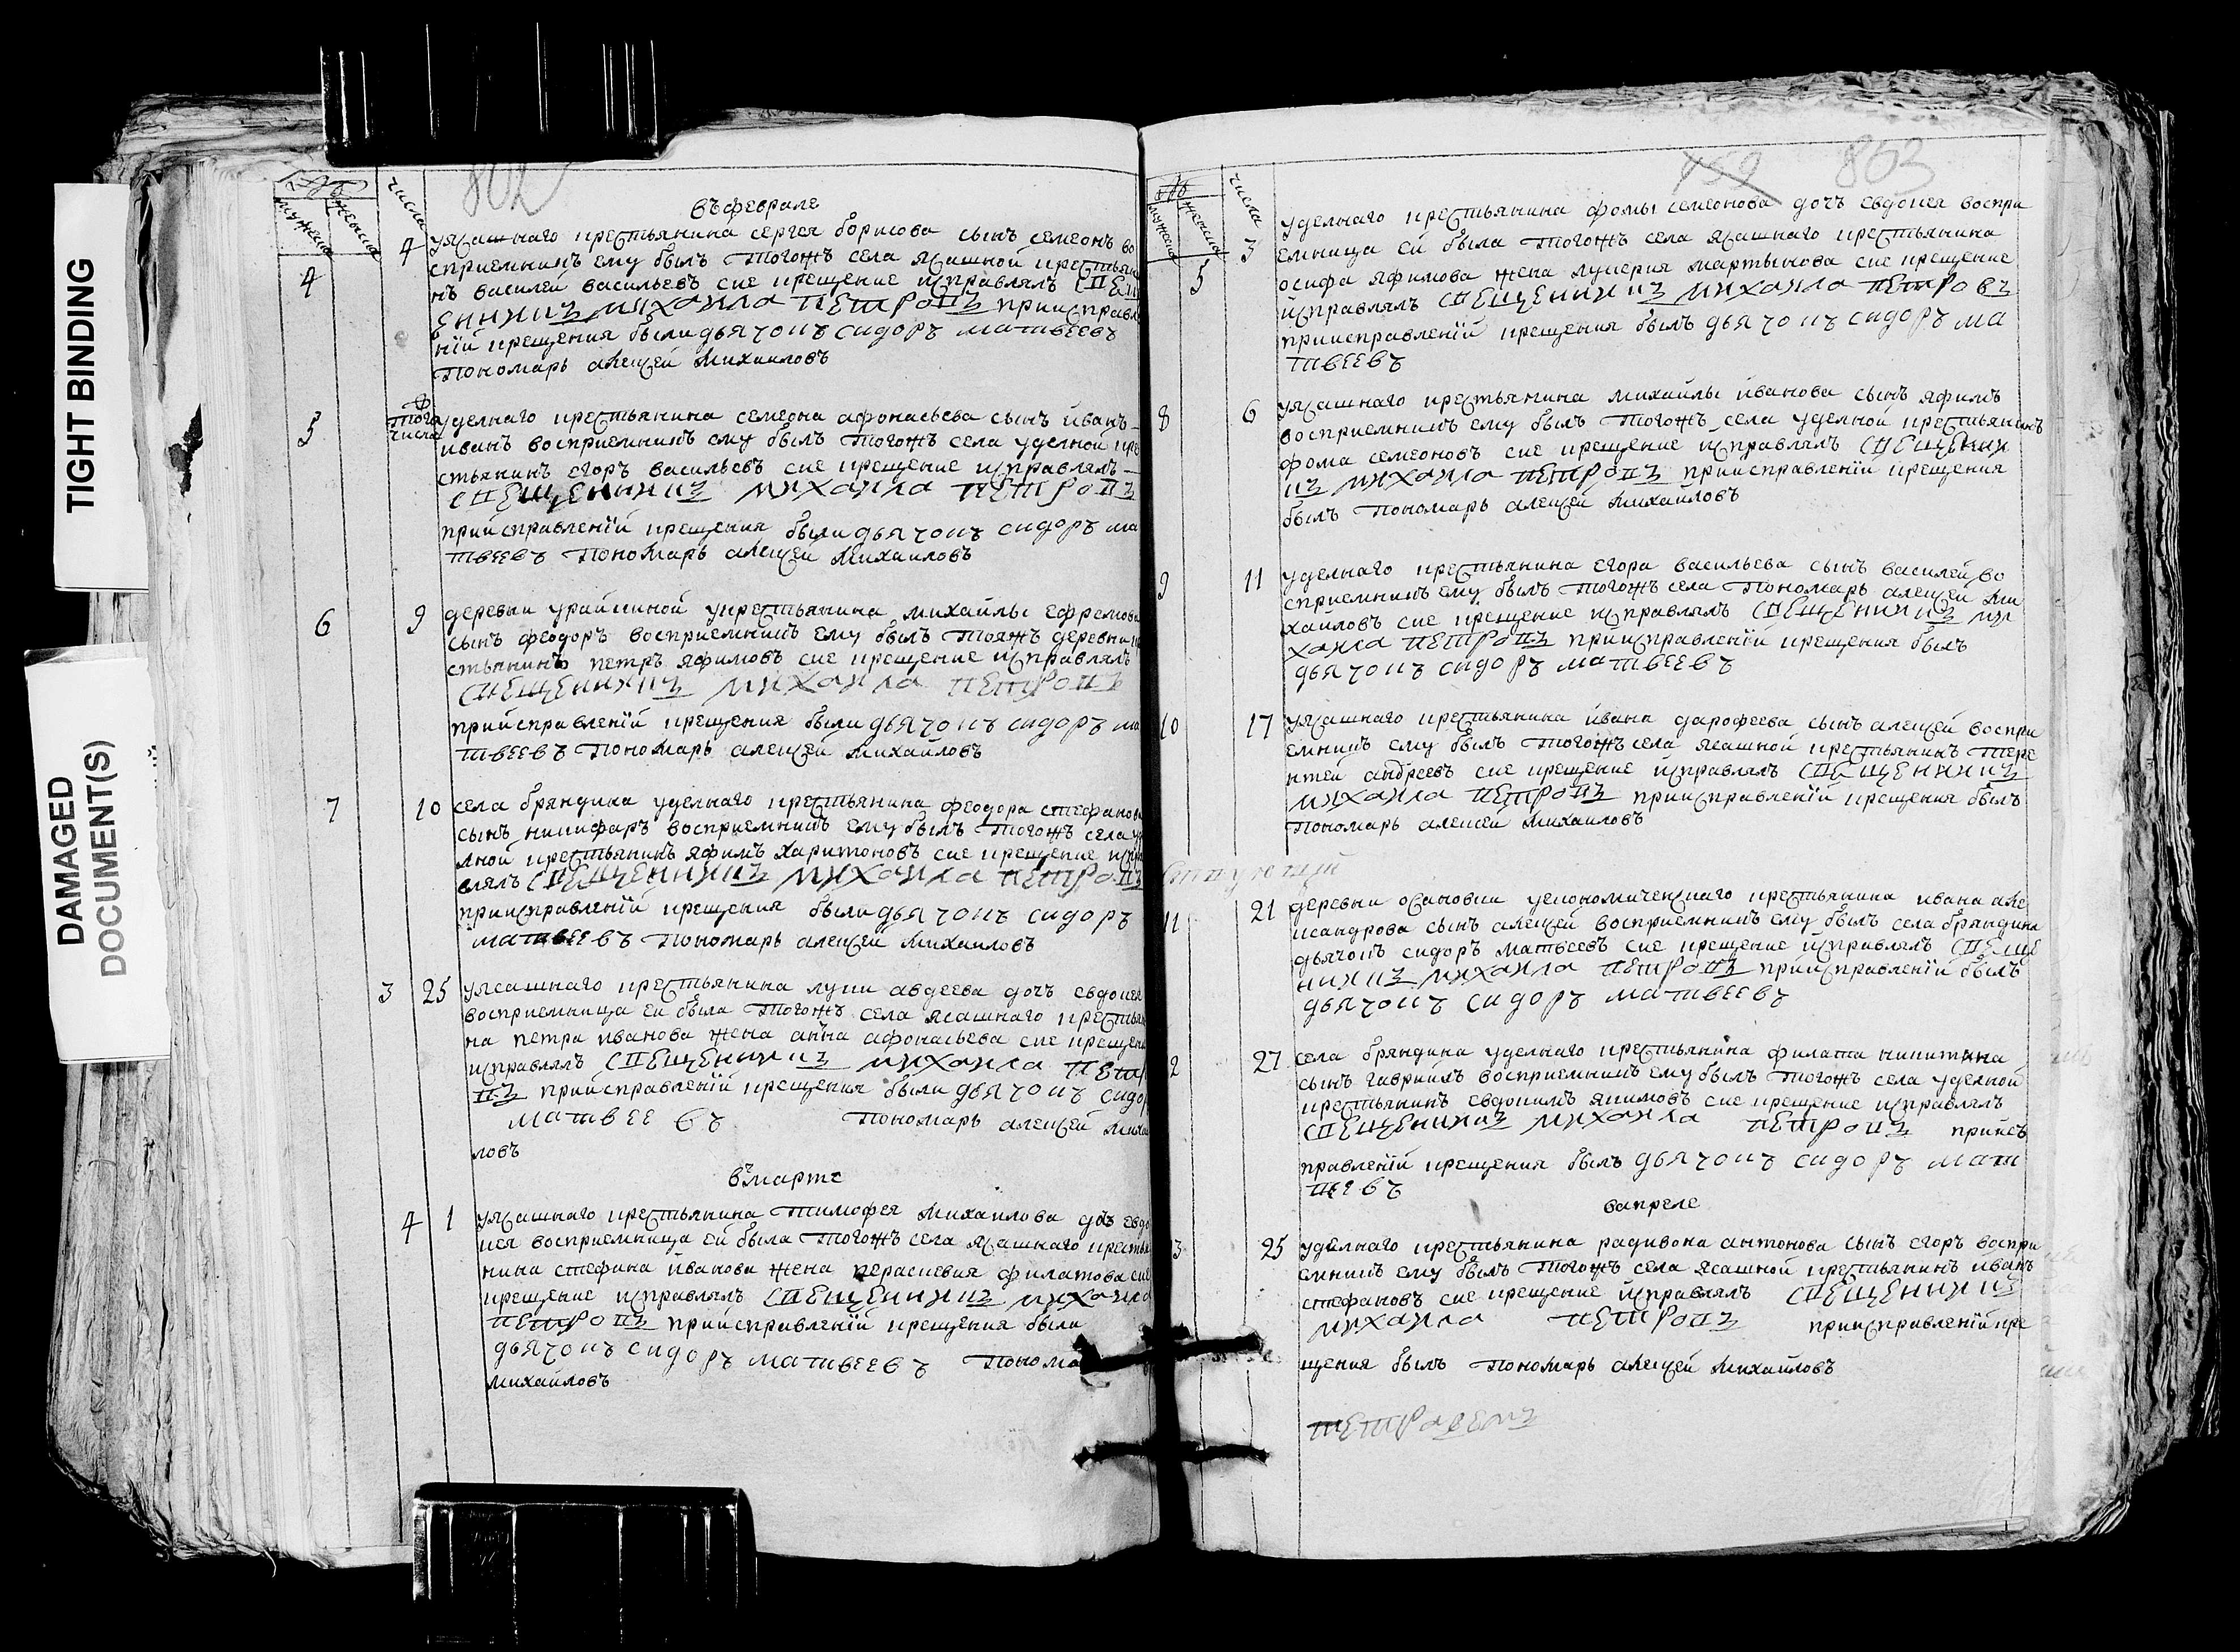 TIGHT BINDING
DAMAGED
DOCUMENT(S)
802
числа
въ феврале
4 4 уясашнаго крестьянина сергея борисова сынъ семеонъ во
сприемникъ ему былъ тогожъ села ясашной крестьяни
нъ василей васильевъ сие крещение исправлялъ свящ
енникъ михаила петровъ приисправле
нїи крещения были дьячокъ сидоръ матвеевъ
пономарь алексей михаиловъ
5 того числа уделнаго крестьянина семеона афонасьева сынъ йванъ
иванъ восприемникъ ему былъ тогожъ села уделной кре
стьянинъ егоръ васильевъ сие крещение исправлялъ
священникъ михаила петровъ
приисправленїи крещения были дьячокъ сидоръ ма
твеевъ пономарь алексей михаиловъ
6 9 деревни урайкиной укрестьянина михайлы ефремова
сынъ феодоръ восприемникъ ему былъ тояжъ деревни кре
стьянинъ петръ яфимовъ сие крещение исправлялъ
священникъ михаила петровъ
приисправленїи крещения были дьячокъ сидоръ ма
твеевъ пономарь алексей михайловъ
7 10 села бряндина уделнаго крестьянина феодора стефанова
сынъ никифаръ восприемникъ ему былъ тогожъ села уде
лной крестьянинъ яфимъ харитоновъ сие крещение испра
влялъ священникъ михаила петровъ
приисправленїи крещения были дьячокъ сидоръ
матвеевъ пономарь алексей михаиловъ
3 25 уясашнаго крестьянина луки авдеева дочъ евдокея
восприемница ей была тогожъ села ясашнаго крестьяни
на петра иванова жена анна афонасьева сие крещение
исправлялъ священникъ михаила петро
въ приисправленїи крещения были дьячокъ сидоръ
матвеевъ пономарь алексей михаи
ловъ
въ марте
4 1 уясашнаго крестьянина тимофея михаилова дочъ евдо
кея восприемница ей была тогожъ села ясашнаго крестья
нина стефана йванова жена парасковия филатова сие
крещение исправлялъ священникъ михаила
петровъ приисправленїи крещения были
дьячокъ сидоръ матвеевъ понома
михайловъ
803
числа
5 3 уделнаго крестьянина фомы семеонова дочъ евдокея воспри
емница ей была тогожъ села ясашнаго крестьянина
осифа яфимова жена лукерия мартынова сие крещение
исправлялъ священникъ михаила петровъ
приисправленїи крещения былъ дьячокъ сидоръ ма
твеевъ
8 6 уясашнаго крестьянина михайлы иванова сынъ яфимъ
восприемникъ ему былъ тогожъ села уделной крестьянинъ
фома семеоновъ сие крещение исправлялъ священни
къ михаила петровъ приисправленїи крещения
былъ пономарь алексей михаиловъ
9 11 уделнаго крестьянина егора васильева сынъ василей во
сприемникъ ему былъ тогожъ села пономарь алексей ми
хаиловъ сие крещение исправлялъ священникъ ми
хаила петровъ приисправленїи крещения былъ
дьячокъ сидоръ матвеевъ
10 17 уясашнаго крестьянина йвана дарофеева сынъ алексей воспри
емникъ ему былъ тогожъ села ясашной крестьянинъ тере
нтей андреевъ сие крещение исправлялъ священникъ
михаила петровъ приисправленїи крещения былъ
пономарь алексей михаиловъ
11 21 деревни осановки уекономическаго крестьянина ивана але
ксандрова сынъ алексей восприемникъ ему былъ села бряндина
дьячокъ сидоръ матвеевъ сие крещение исправлялъ свяще
нникъ михаила петровъ приисправленїи былъ
дьячокъ сидоръ матвеевъ
2 27 села бряндина уделнаго крестьянина филата никитина
сынъ гавриилъ восприемникъ ему былъ тогожъ села уделной
крестьянинъ евдокимъ якимовъ сие крещение исправлялъ
священникъ михаила петровъ приисъ
правленїи крещения былъ дьячокъ сидоръ мат
веевъ
вапреле
3 25 уделнаго крестьянина радивона антонова сынъ егоръ воспри
емникъ ему былъ тогожъ села ясашной крестьянинъ иванъ
стефановъ сие крещение исправлялъ священникъ
михаила петровъ приисправленїи кре
щения былъ пономарь алексей михайловъ